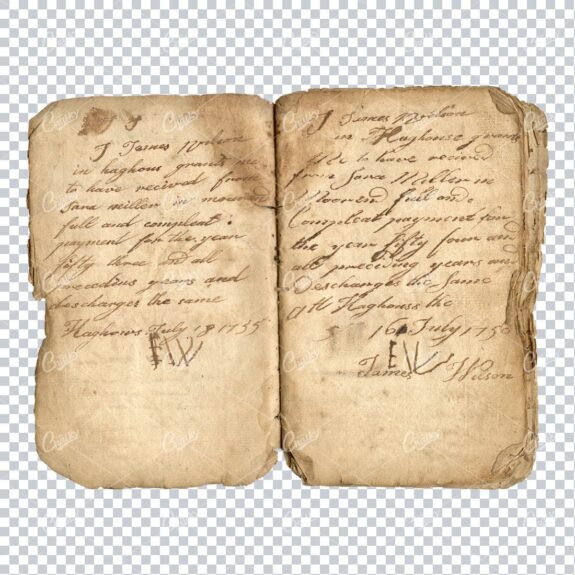 I James Wilson
in haghous grants me
to have recived from
Jara miller in
full and compleat
payment for the year
fifty three and all
precedius years and
descharges the same
Haghows July 19 1755
EW
I James Wilson
in Haghouse grants
Me to have recived
from Jara Miller in
full and
Compleat payment for
the year fifty four and
all preceding years and
Descharges the Same
At Haghouss the
16 July 1756
EW
James Wilson